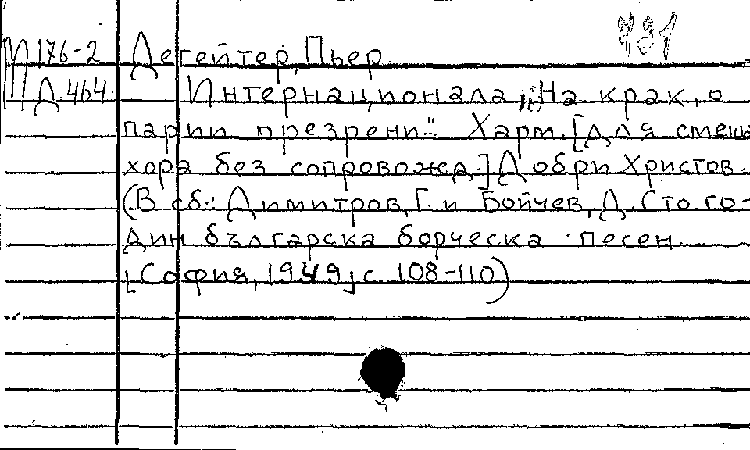 781
М 176-2 Дегейтер, Пьер
Д. 464 Интернационала „На крак, о
парии презрени". Харм. [для смеш.
хора без сопровожд.] Добри Христов.
(В сб.: Димитров, Г. и Бойчев, Д. Сто го-
дин българска борческа песен.
[София, 1949, с. 108-110)